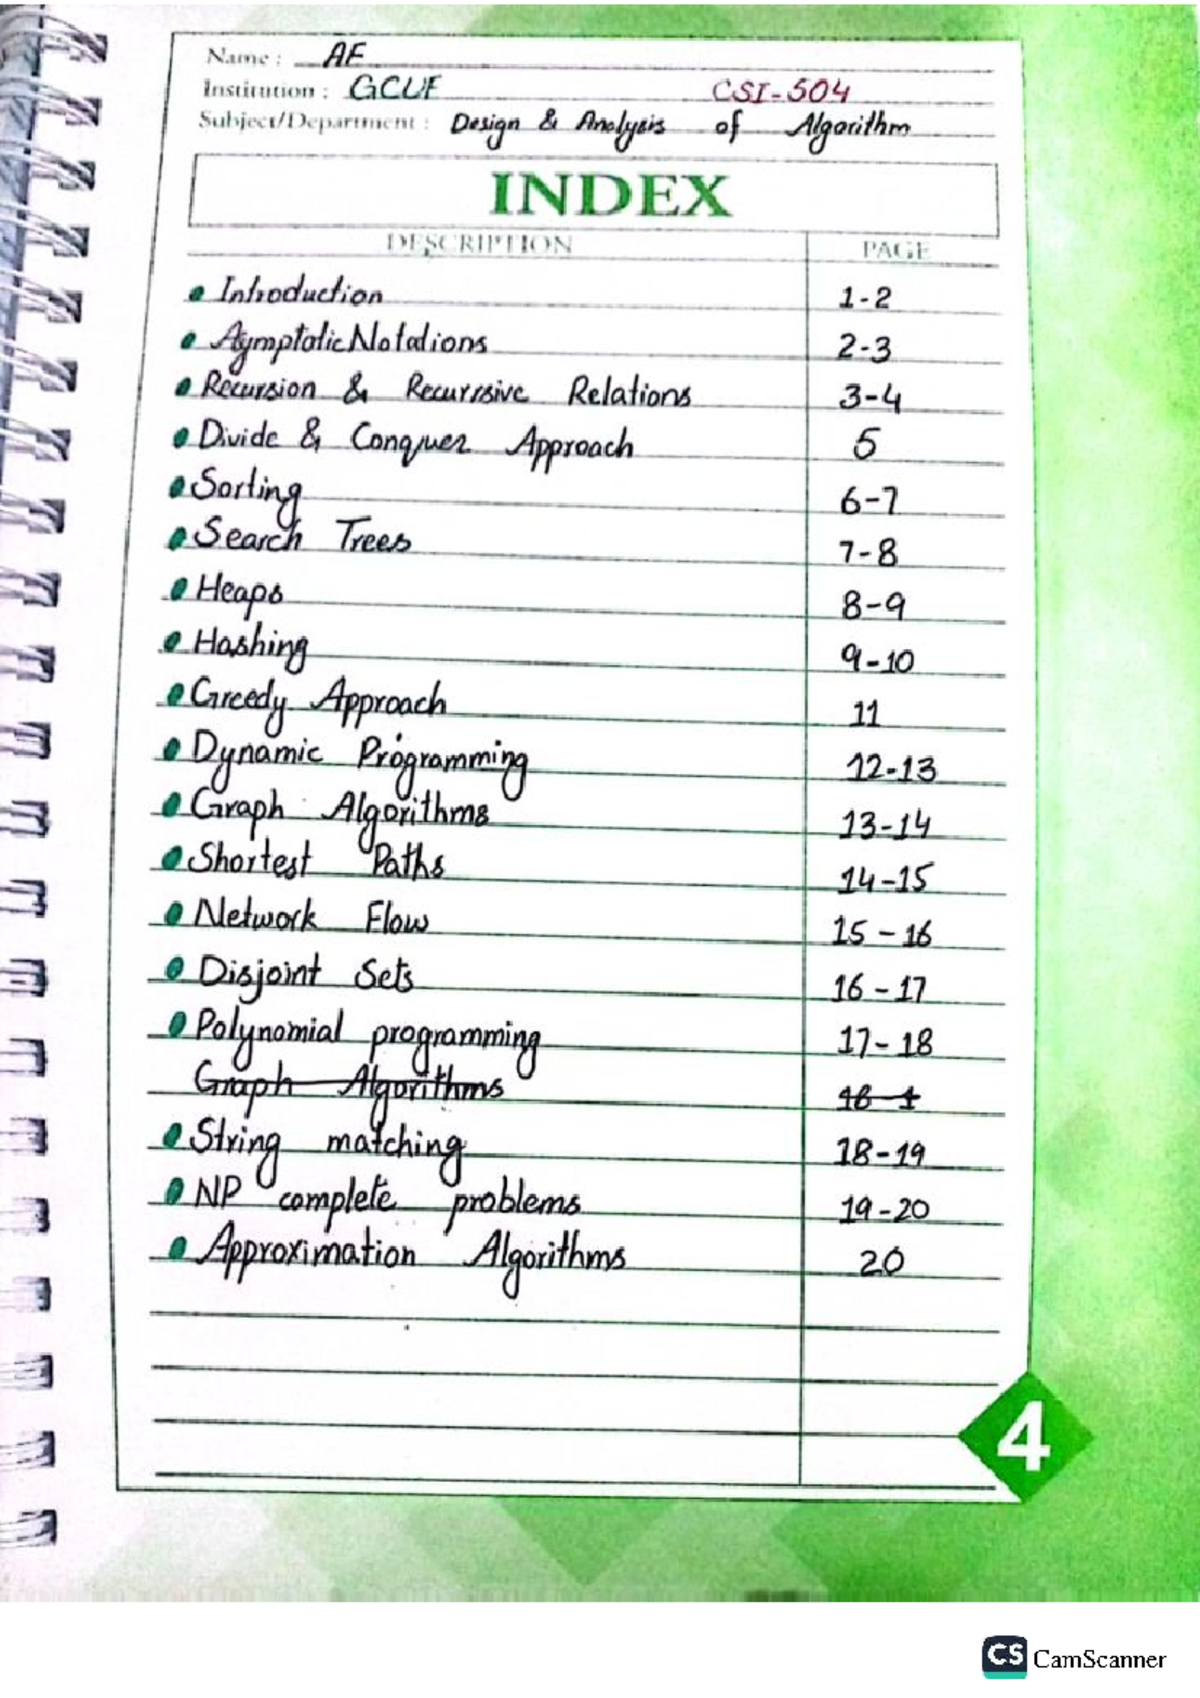 Name : AF
Institution : GCUF CSI-504
Subject/Department : Design & Analysis of Algorithm
INDEX
DESCRIPTION PAGE
• Introduction 1-2
• Aymptotic Notations 2-3
• Recursion & Recurrsive Relations 3-4
• Divide & Conquer Approach 5
• Sorting 6-7
• Search Trees 7-8
• Heaps 8-9
• Hashing 9-10
• Greedy Approach 11
• Dynamic Programming 12-13
• Graph Algorithms 13-14
• Shortest Paths 14-15
• Network Flow 15-16
• Disjoint Sets 16-17
• Polynomial programming 17-18
Graph Algorithms 18-1
• String matching 18-19
• NP complete problems 19-20
• Approximation Algorithms 20
4
CS CamScanner